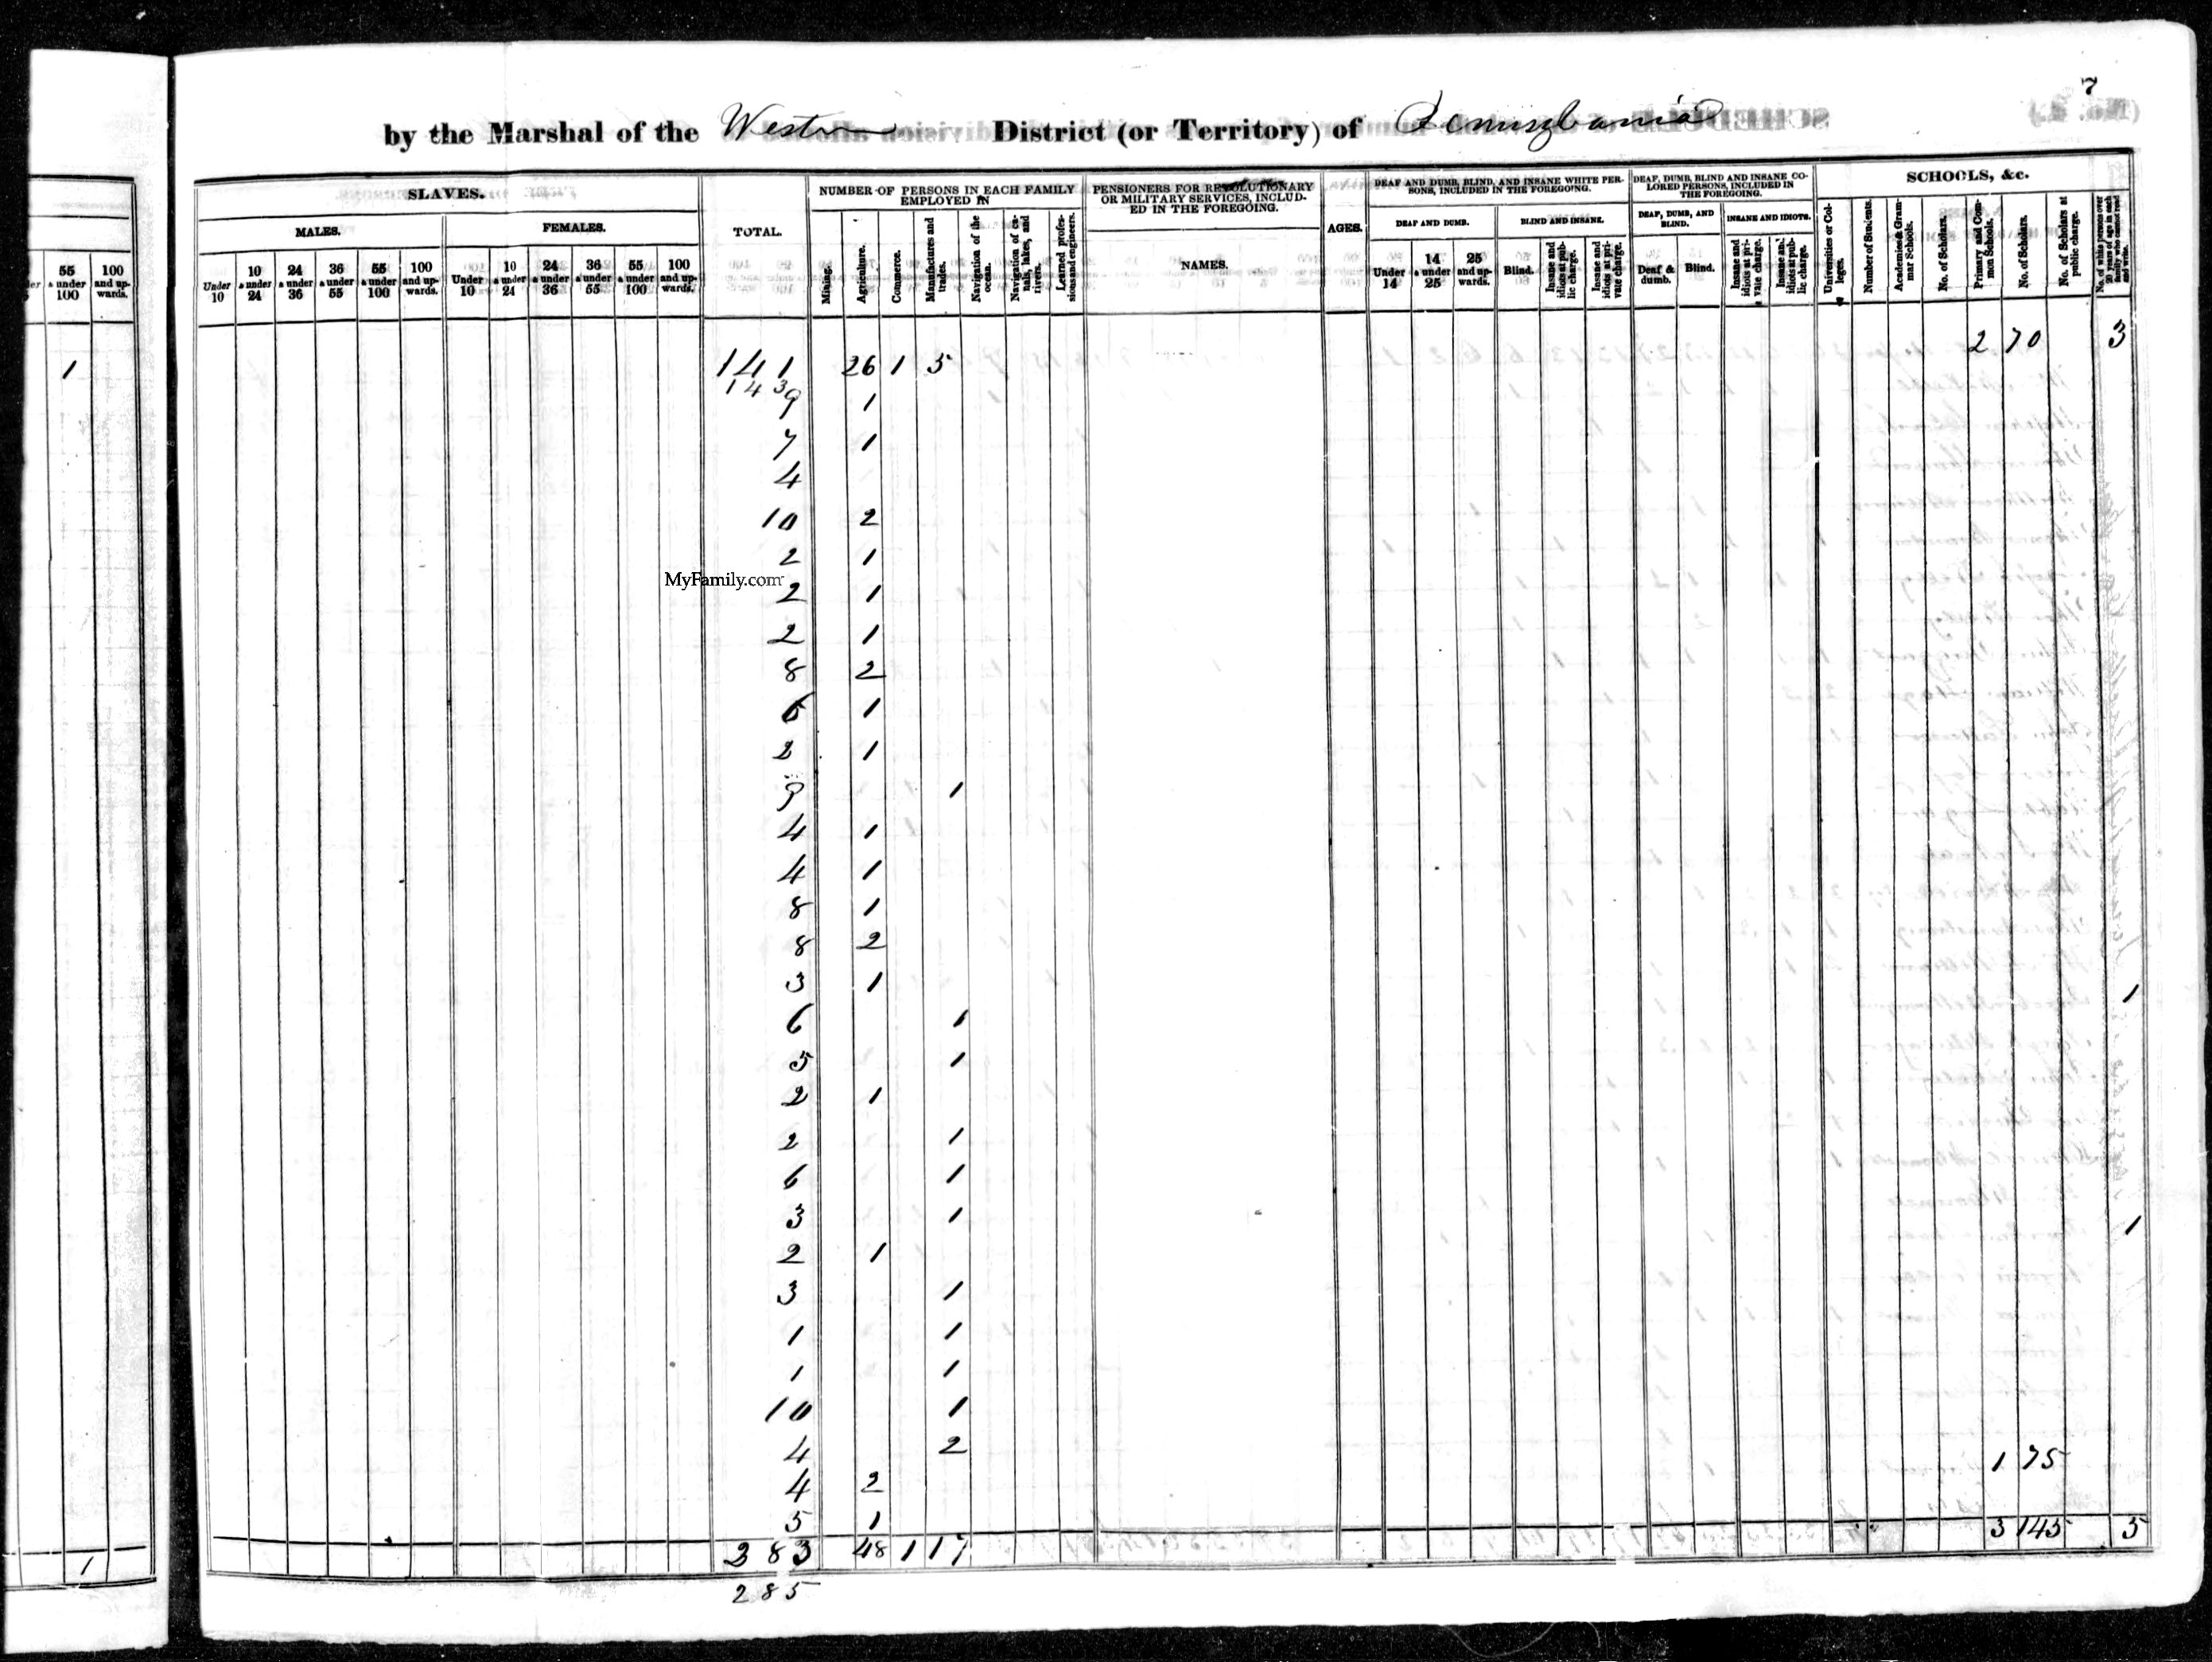 7
by the Marshal of the Western District (or Territory) of Pennsylvania
SLAVES.
MALES.
FEMALES.
Under 10
10 & under 24
24 & under 36
36 & under 55
55 & under 100
100 and upwards.
Under 10
10 & under 24
24 & under 36
36 & under 55
55 & under 100
100 and upwards.
TOTAL.
NUMBER OF PERSONS IN EACH FAMILY EMPLOYED IN
Mining.
Agriculture.
Commerce.
Manufactures and trades.
Navigation of the ocean.
Navigation of canals, lakes, and rivers.
Learned professions and engineers.
PENSIONERS FOR REVOLUTIONARY OR MILITARY SERVICES, INCLUDED IN THE FOREGOING.
NAMES.
AGES.
DEAF AND DUMB, BLIND, AND INSANE WHITE PERSONS, INCLUDED IN THE FOREGOING.
DEAF AND DUMB.
Under 14
14 & under 25
25 and upwards.
BLIND AND INSANE.
Blind.
Insane and idiots at public charge.
Insane and idiots at private charge.
DEAF, DUMB, BLIND AND INSANE COLORED PERSONS, INCLUDED IN THE FOREGOING.
DEAF, DUMB, AND BLIND.
Deaf & dumb.
Blind.
INSANE AND IDIOTS.
Insane and idiots at private charge.
Insane and idiots at public charge.
SCHOOLS, &c.
Universities or Colleges.
Number of Students.
Academies & Grammar Schools.
No. of Scholars.
Primary and Common Schools.
No. of Scholars.
No. of Scholars at public charge.
No. of white persons over 20 years of age in each family who cannot read and write.
55 & under 100
100 and upwards.
2 70 3
1 141 26 1 5
143
9 1
7 1
4
10 2
2 1
MyFamily.com
2 1
2 1
8 2
6 1
2 1
9 1
4 1
4 1
8 1
8 2
3 1 1
6 1
5 1
2 1
2 1
6 1
3 1 1
2 1
3 1
1 1
1 1
10 1
4 2 1 75
4 2
5 1
1 283 48 1 17 3 145 5
285